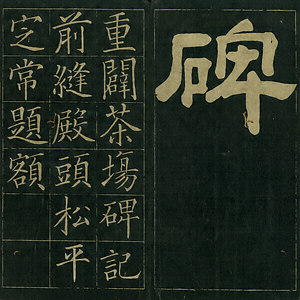 碑
重闢茶塲碑記
前縫殿頭松平
定常題額